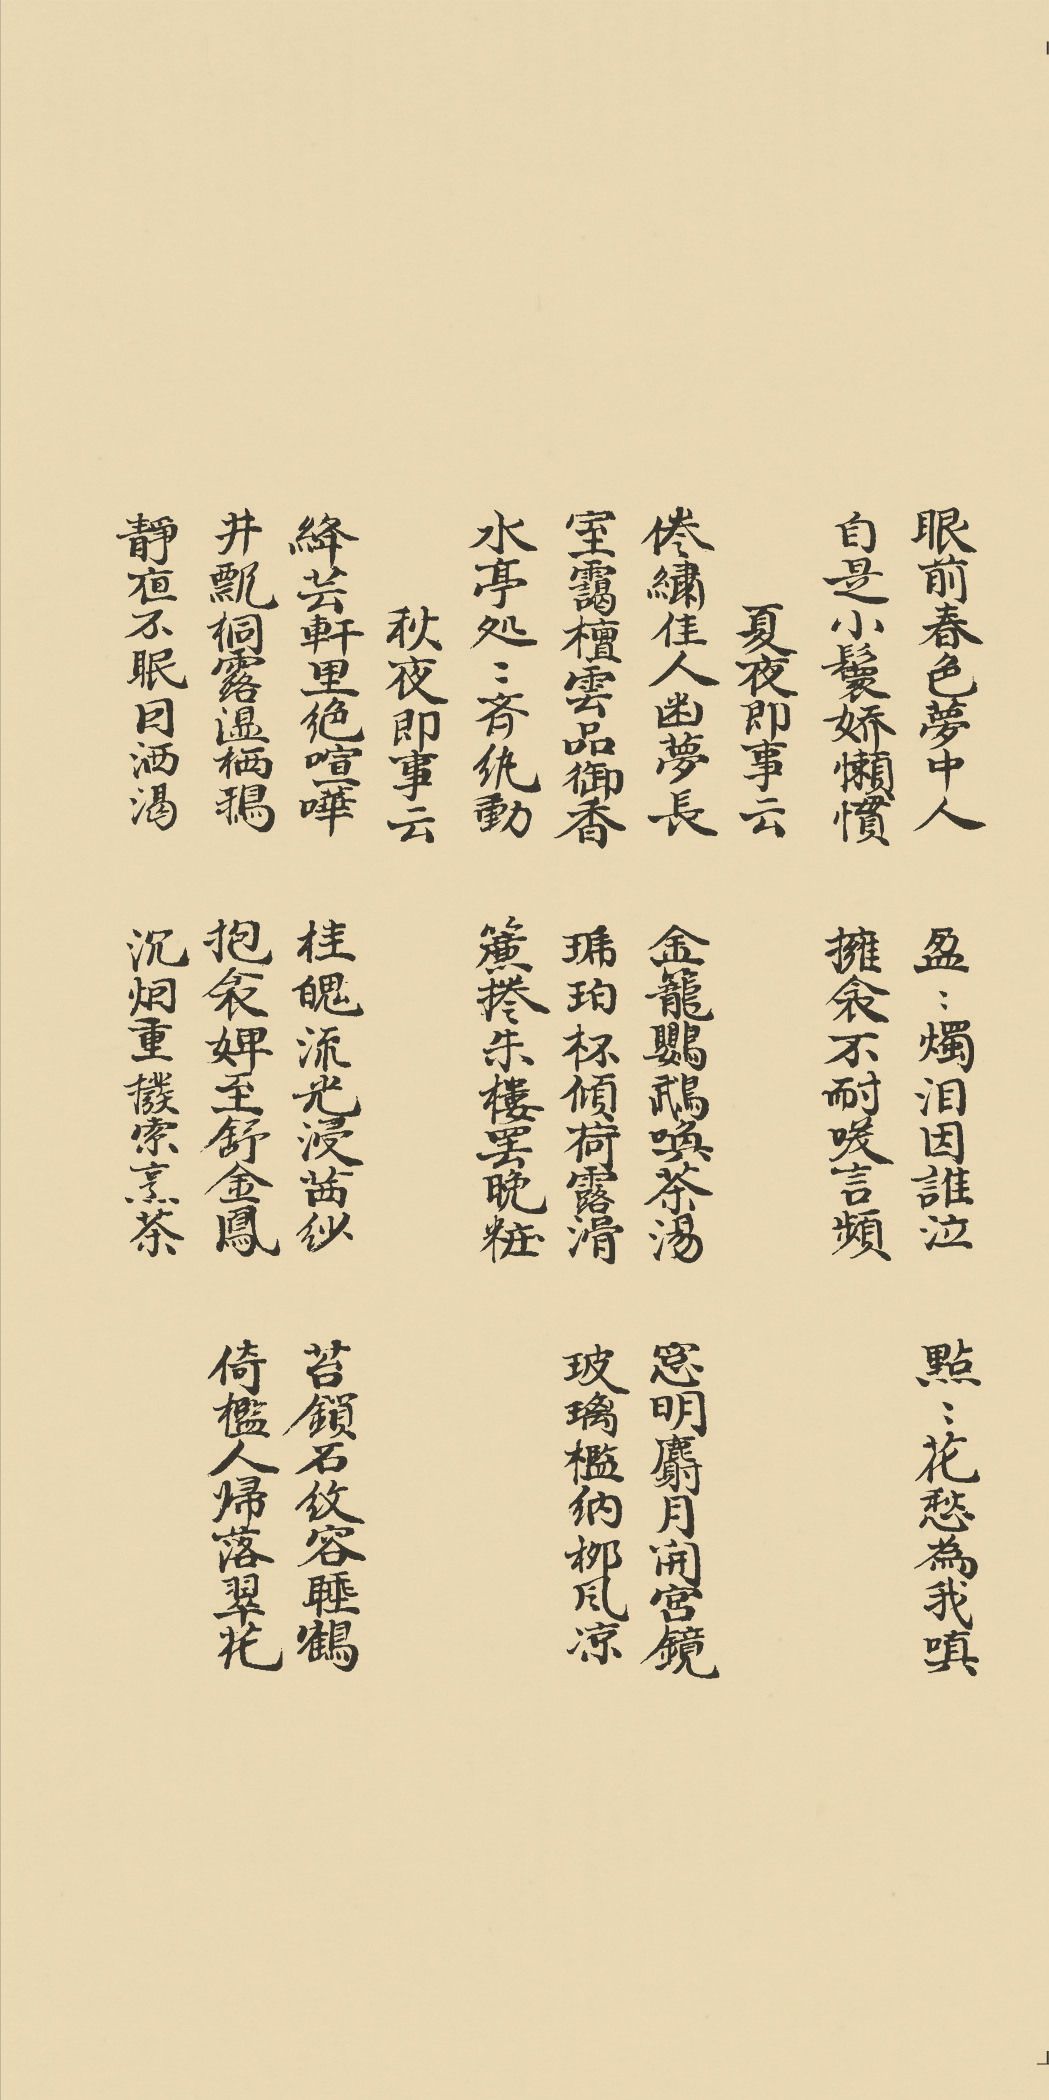 眼前春色夢中人　盈〻燭泪因誰泣　點〻花愁為我嗔
自是小鬟嬌懶慣　擁衾不耐咲言頻
夏夜即事云
倦繡佳人幽夢長　金籠鸚鵡喚茶湯　窓明麝月開宮鏡
室靄檀雲品御香　琥珀杯傾荷露滑　玻璃檻納柳風凉
水亭処〻齊紈動　簾捲朱樓罢晚粧
秋夜即事云
絳芸軒里絕喧嘩　桂魄流光浸茜紗　苔鎖石紋容睡鶴
井飄桐露湿栖鴉　抱衾婢至舒金鳳　倚檻人歸落翠花
靜夜不眠因酒渴　沉烟重撥索烹茶